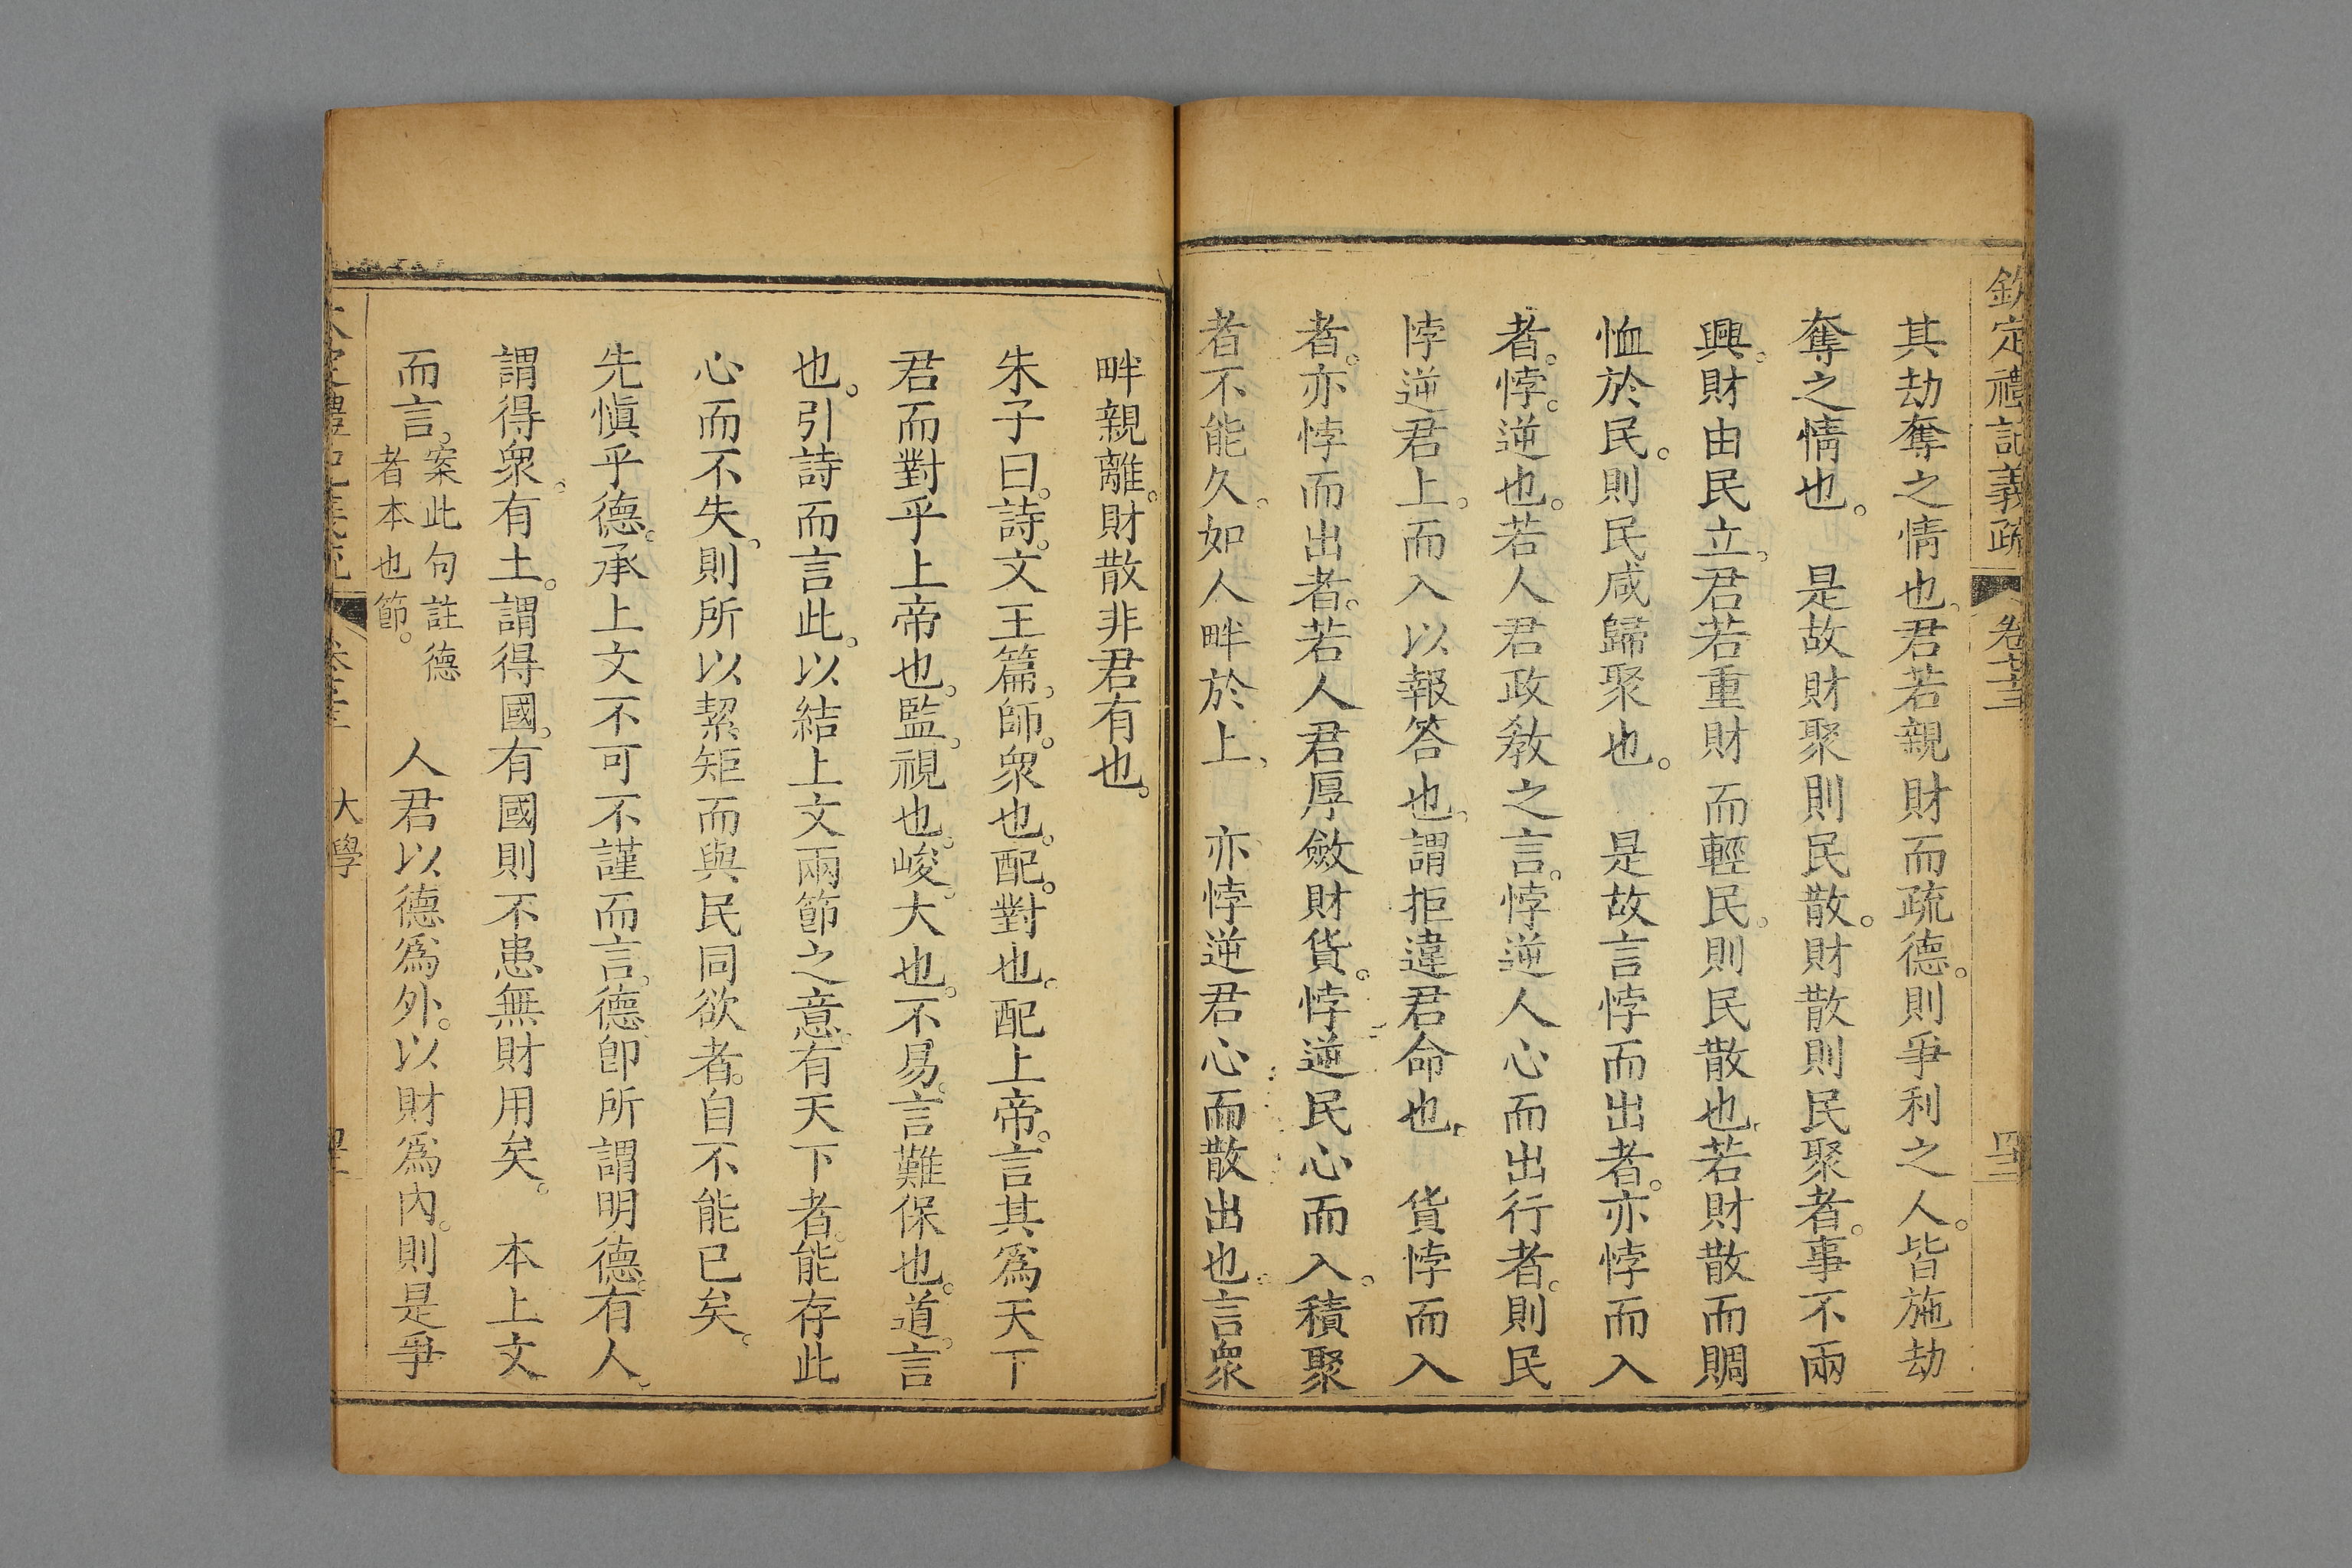 欽定禮記義疏 卷 四
其劫奪之情也君若親財而疏德。則爭利之人。皆施劫
奪之情也。 是故財聚則民散。財散則民聚者。事不兩
興。財由民立。君若重財而輕民。則民散也。若財散而賙
恤於民。則民咸歸聚也。 是故言悖而出者。亦悖而入
者。悖。逆也。若人君政敎之言。悖逆人心而出行者。則民
悖逆君上。而入以報答也。謂拒違君命也。 貨悖而入
者。亦悖而出者。若人君厚斂財貨。悖逆民心而入。積聚
者不能久。如人畔於上、 亦悖逆君心而散出也。言衆
畔親離。財散非君有也。
朱子曰。詩。文王篇。師。衆也。配。對也。配上帝。言其爲天下
君而對乎上帝也。監。視也。峻。大也。不易。言難保也。道。言
也。引詩而言此。以結上文兩節之意。有天下者。能存此
心而不失。則所以絜矩而與民同欲者。自不能已矣。
先愼乎德。承上文不可不謹而言。德卽所謂明德。有人。
謂得衆。有土。謂得國。有國則不患無財用矣。 本上文
而言。案此句註德者本也節。 人君以德爲外。以財爲內。則是爭
大學